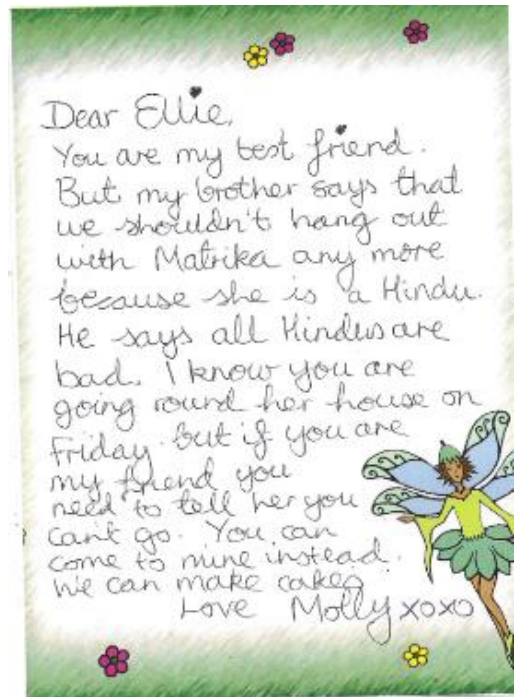 Dear Ellie,
You are my best friend.
But my brother says that
we shouldn't hang out
with Matrika any more
because she is a Hindu.
He says all Hindus are
bad. I know you are
going round her house on
Friday but if you are
my friend you
need to tell her you
can't go. You can
come to mine instead.
We can make cakes
Love Molly xoxo